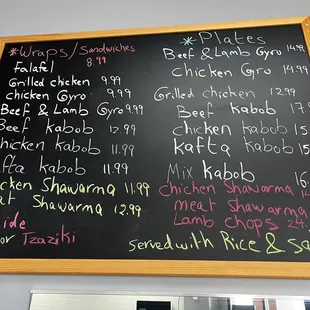 *Wraps/Sandwiches
8.99
Falafel
Grilled chicken 9.99
chicken Gyro 9.99
Beef & Lamb Gyro 9.99
Beef kabob 12.99
chicken kabob 11.99
kafta kabob 11.99
cken Shawarma 11.99
at Shawarma 12.99
ide
or Tzaziki
*Plates
Beef & Lamb Gyro 14.99
chicken Gyro 14.99
Grilled chicken 12.99
Beef kabob 17.9
chicken kabob 15
kafta kabob 15
Mix kabob 16.
chicken Shawarma 14
meat Shawarma
Lamb chops 24.
served with Rice & Sa